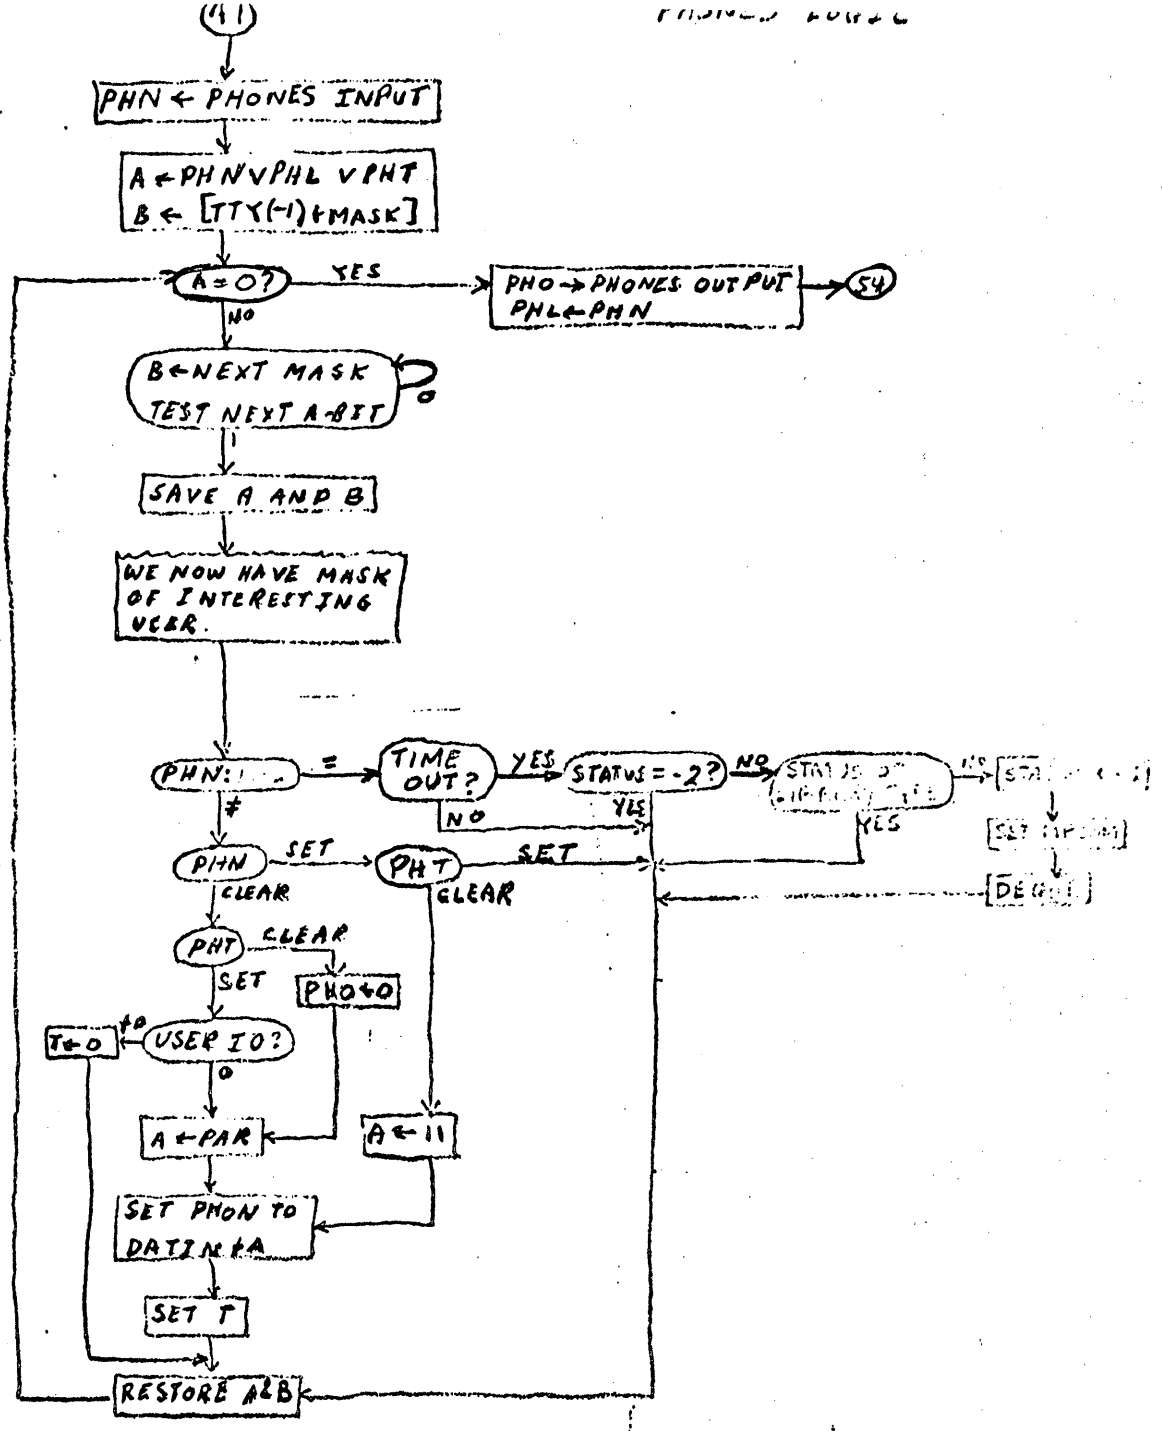 41
PHONES LOGIC
PHN ← PHONES INPUT
A ← PHN ∨ PHL ∨ PHT
B ← [TTY(-1)+MASK]
A = 0?
YES
PHO → PHONES OUTPUT
PHL ← PHN
54
NO
B ← NEXT MASK
TEST NEXT A-BIT
0
1
SAVE A AND B
WE NOW HAVE MASK
OF INTERESTING
USER.
PHN:
=
TIME
OUT?
YES
STATUS = -2?
NO
STATUS
NO
≠
NO
YES
YES
PHN
SET
PHT
SET
[SET
CLEAR
CLEAR
PHT
CLEAR
SET
PHO←0
≠0
T←0
USER IO?
0
A ← PAR
A ← 11
SET PHON TO
DATIN+A
SET T
RESTORE A&B